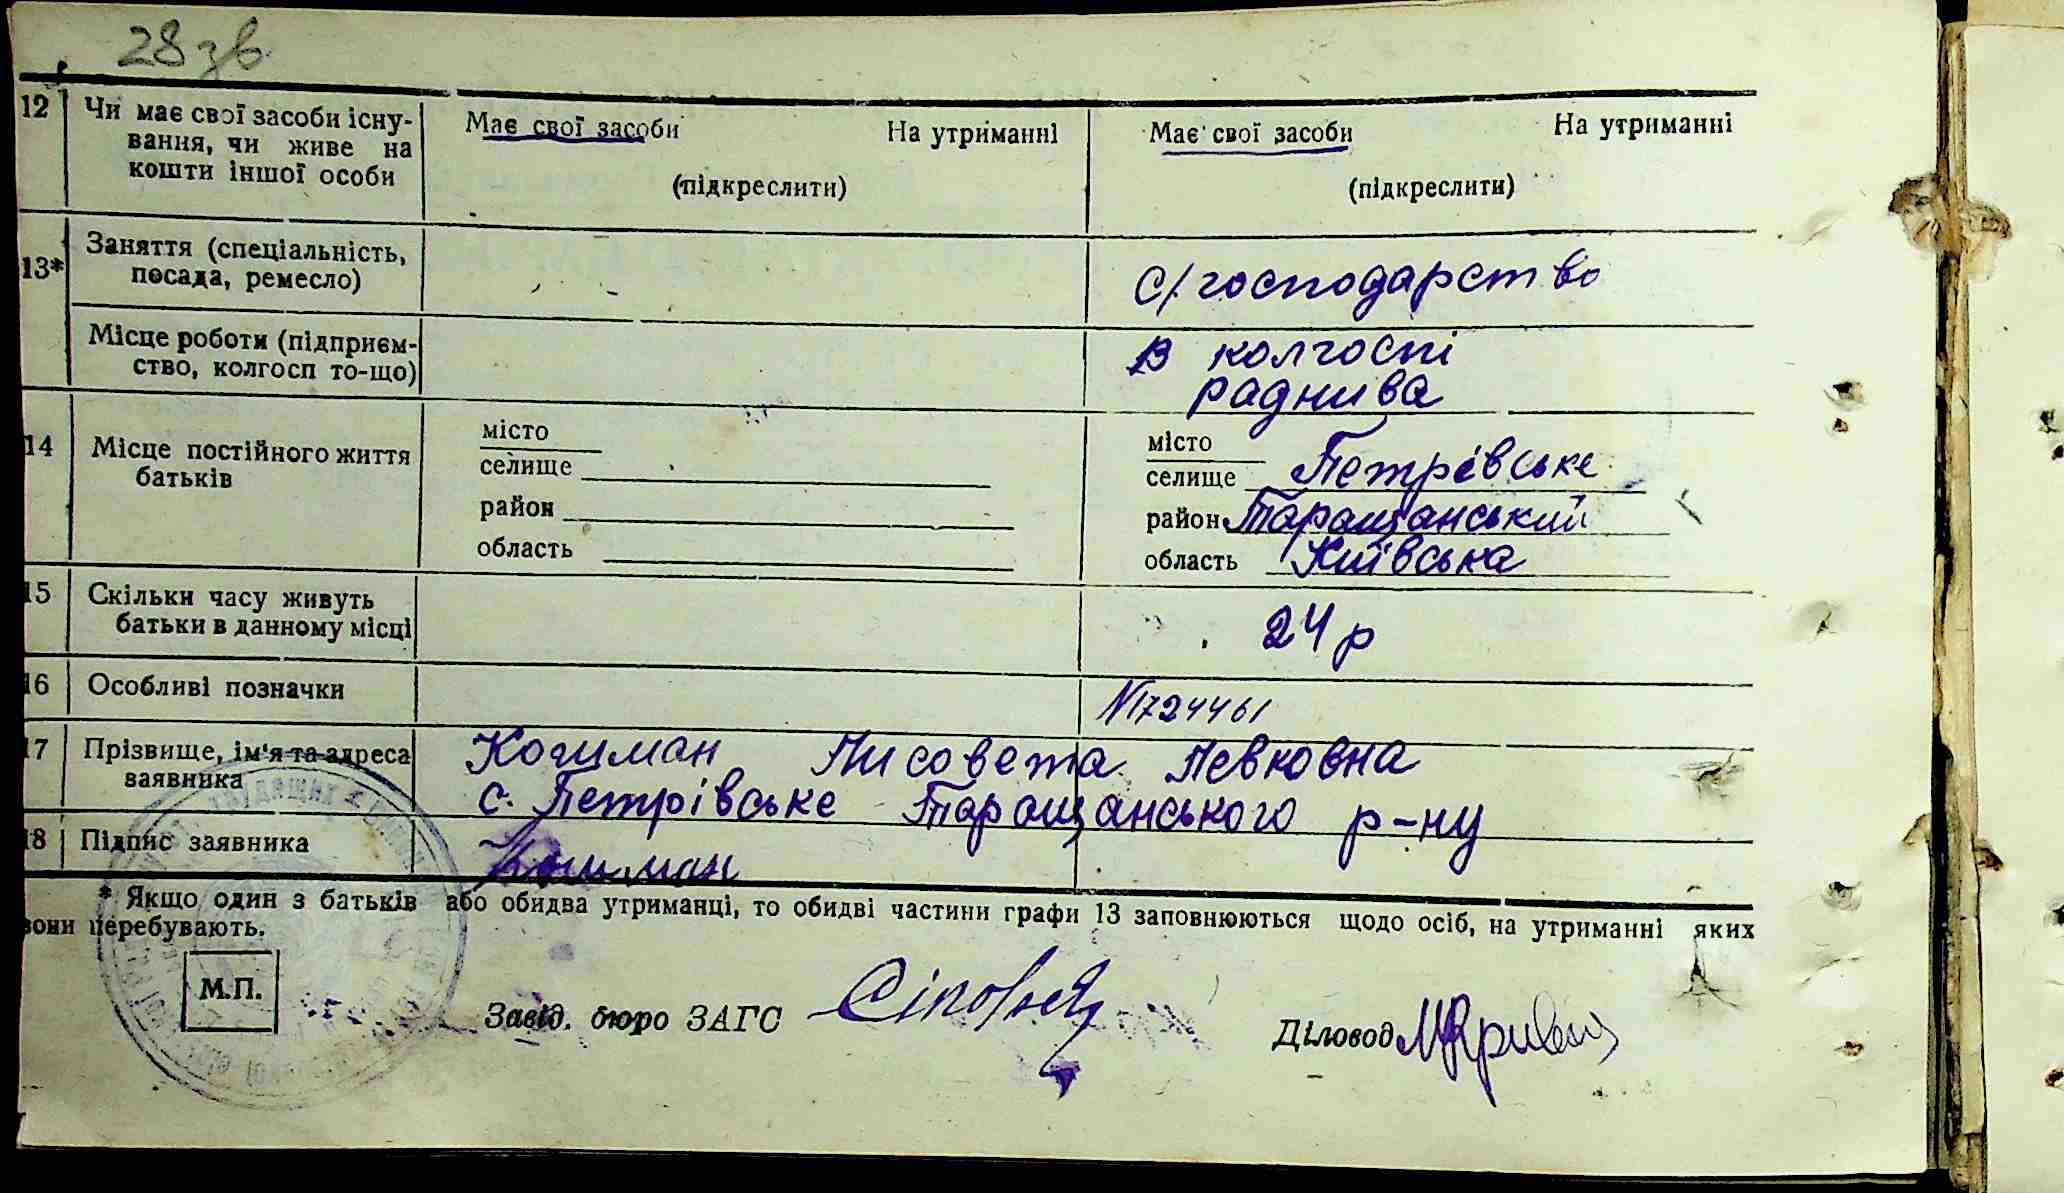 28 зв
12 Чи має свої засоби існу- Має свої засоби На утриманні Має свої засоби На утриманні
вання, чи живе на
кошти іншої особи (підкреслити) (підкреслити)
13* Заняття (спеціальність,
посада, ремесло) с/господарство
Місце роботи (підприєм- в колгоспі
ство, колгосп то-що) раднива
14 Місце постійного життя місто місто
батьків селище селище Петрівське
район район Таращанський
область область Київська
15 Скільки часу живуть
батьки в данному місці 24 р
16 Особливі позначки №724461
17 Прізвище, ім'я та адреса Кошман Лисовета Левковна
заявника с. Петрівське Таращанського р-ну
18 Підпис заявника Кошман
* Якщо один з батьків або обидва утриманці, то обидві частини графи 13 заповнюються щодо осіб, на утриманні яких
вони перебувають.
М.П.
Завід. бюро ЗАГС Діловод